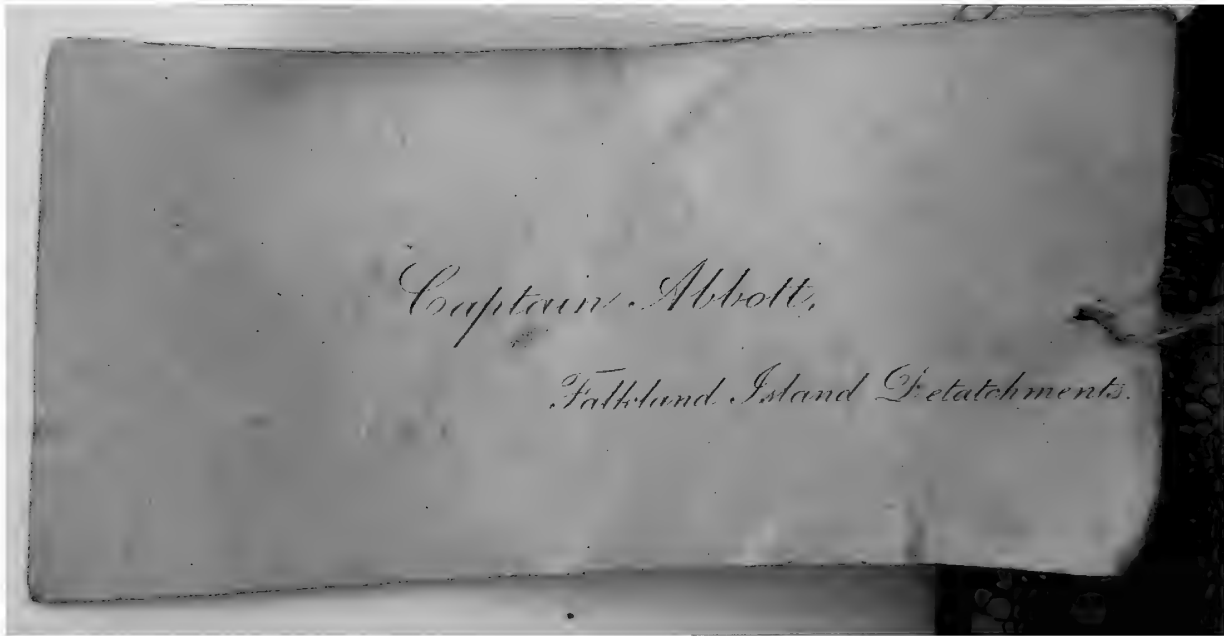 Captain Abbott,
Falkland Island Detatchments.